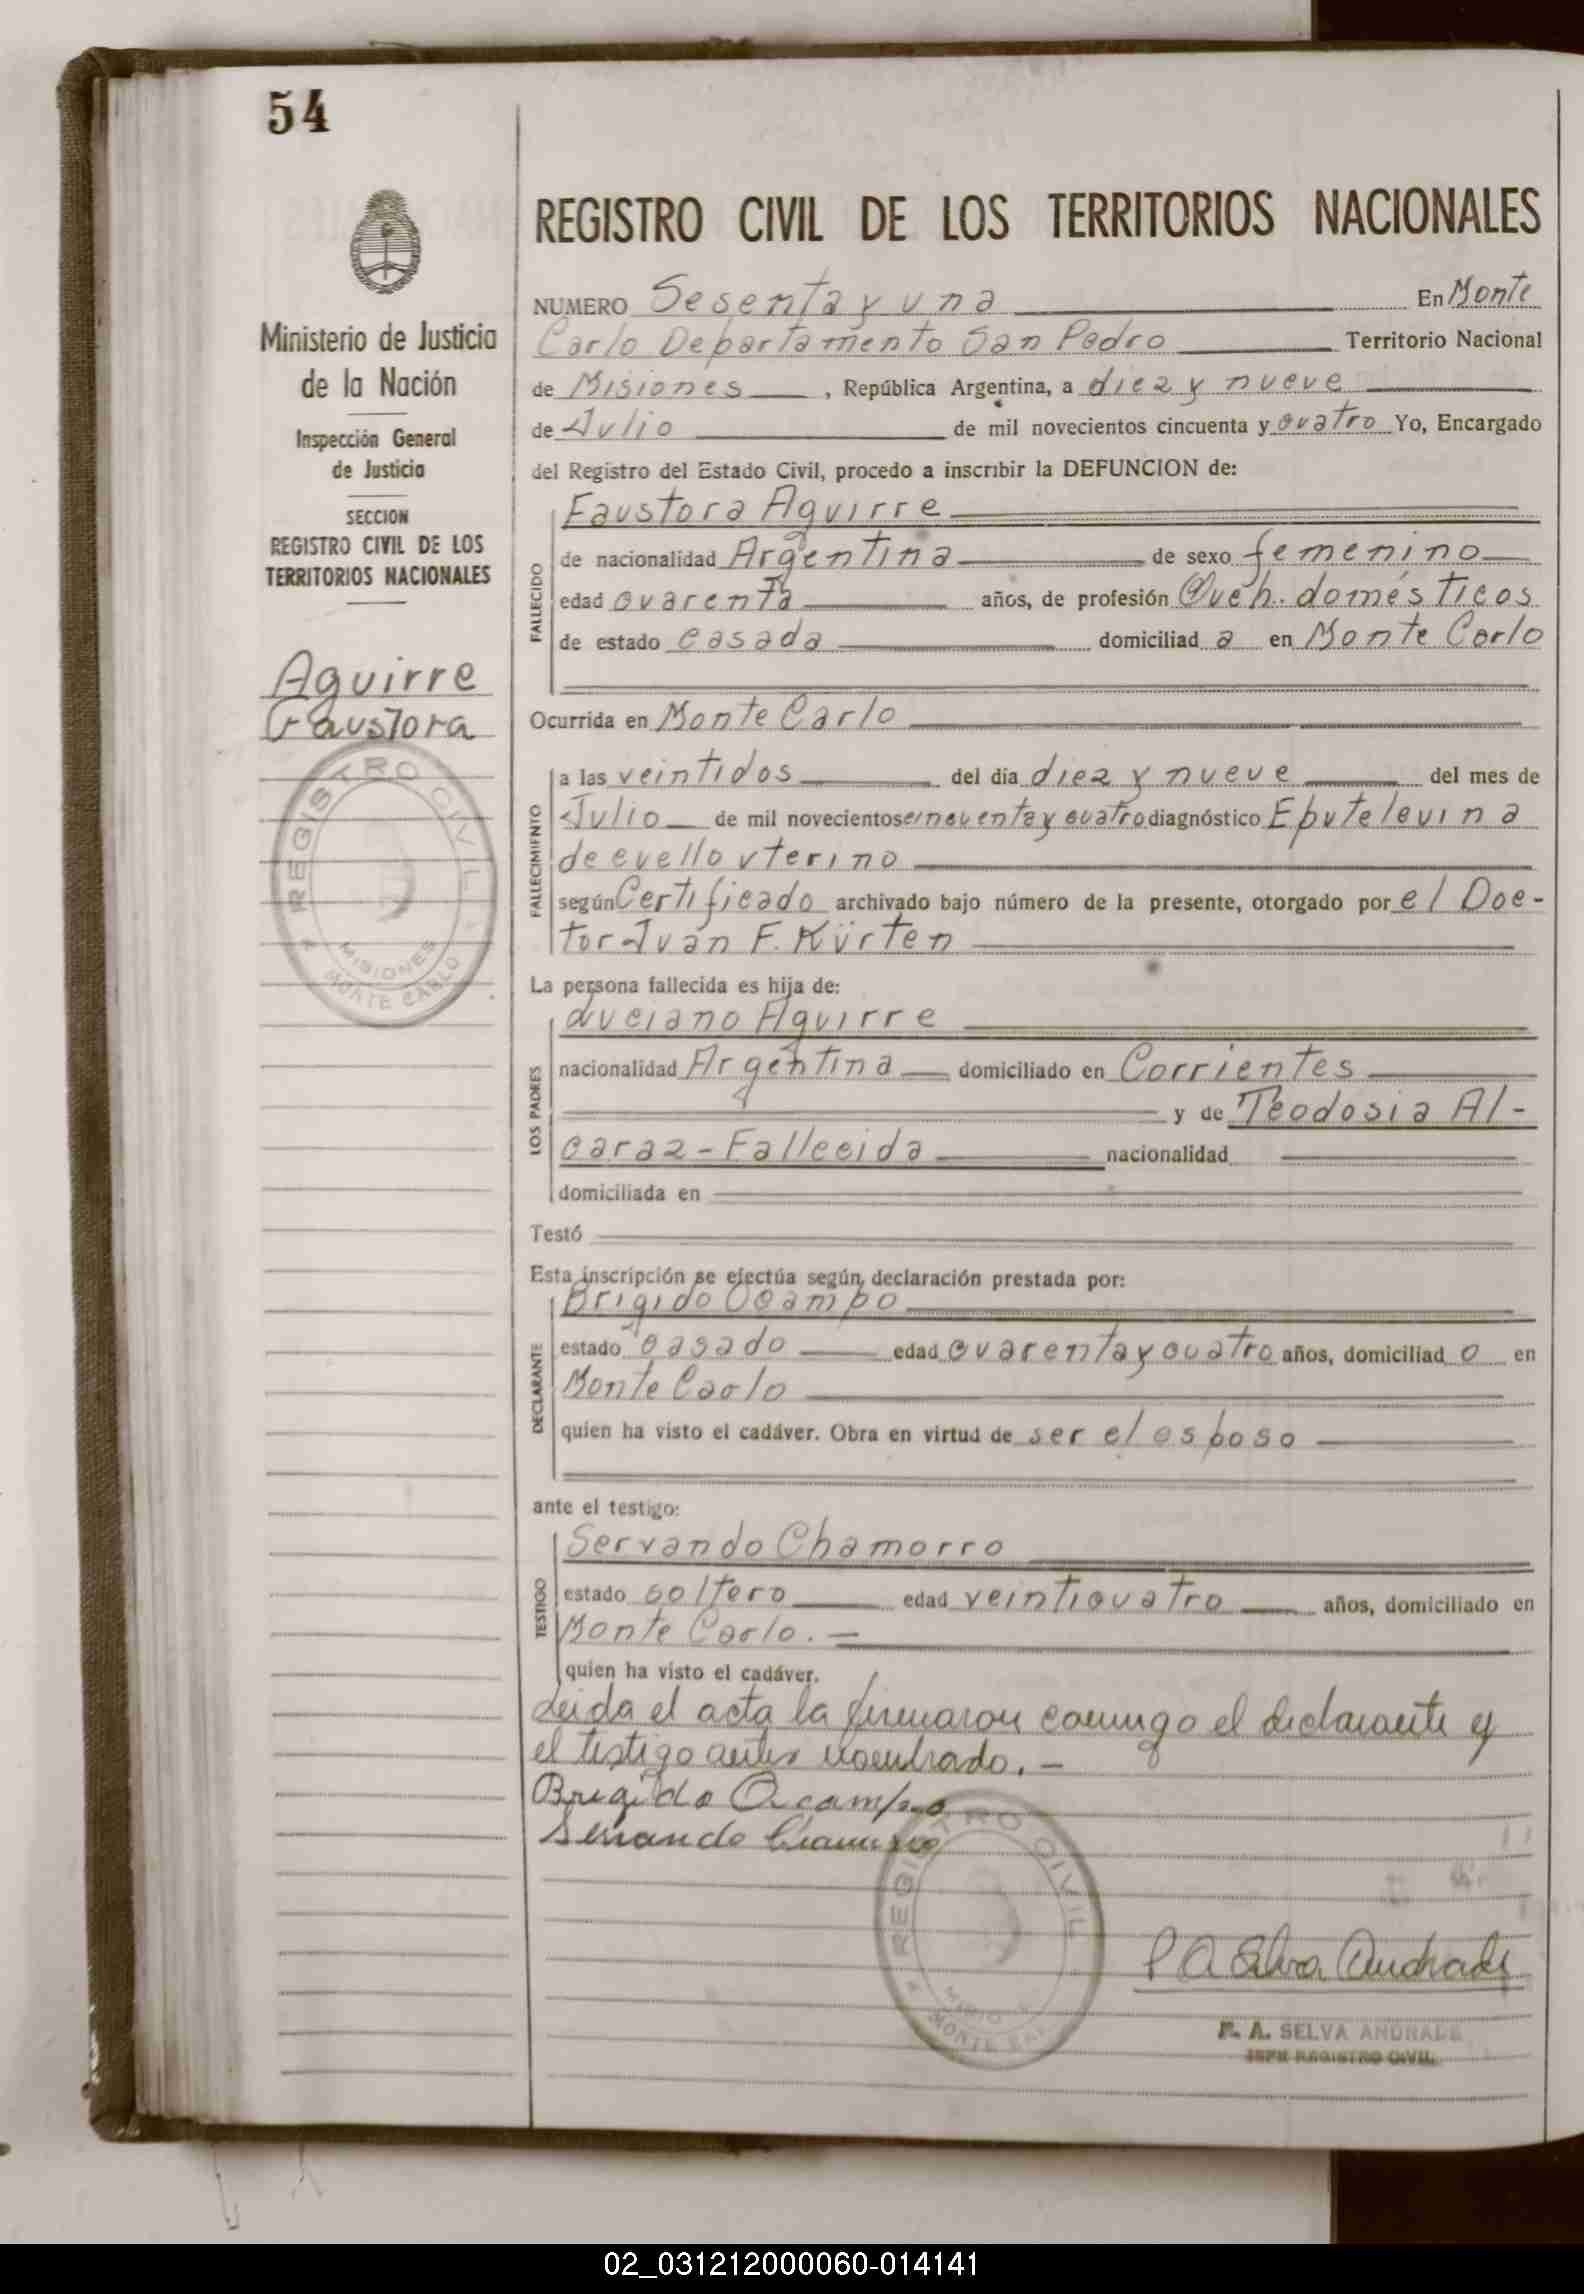 54
REGISTRO CIVIL DE LOS TERRITORIOS NACIONALES
Ministerio de Justicia
de la Nación
Inspección General
de Justicia
SECCION
REGISTRO CIVIL DE LOS
TERRITORIOS NACIONALES
Aguirre
Faustora
REGISTRO CIVIL
MISIONES
MONTE CARLO
NUMERO Sesenta y una En Monte
Carlo Departamento San Pedro Territorio Nacional
de Misiones, República Argentina, a diez y nueve
de Julio de mil novecientos cincuenta y cuatro Yo, Encargado
del Registro del Estado Civil, procedo a inscribir la DEFUNCION de:
FALLECIDO
Faustora Aguirre
de nacionalidad Argentina de sexo femenino
edad cuarenta años, de profesión Queh. domésticos
de estado casada domiciliad a en Monte Carlo
Ocurrida en Monte Carlo
FALLECIMIENTO
a las veintidos del día diez y nueve del mes de
Julio de mil novecientos cincuenta y cuatro diagnóstico
de cuello uterino
según Certificado archivado bajo número de la presente, otorgado por el Doc-
tor Juan F. Kürten
La persona fallecida es hija de:
LOS PADRES
Luciano Aguirre
nacionalidad Argentina domiciliado en Corrientes
y de Teodosia Al-
caraz - Fallecida nacionalidad
domiciliada en
Testó
Esta inscripción se efectúa según declaración prestada por:
DECLARANTE
Brigido Ocampo
estado casado edad cuarenta y cuatro años, domiciliad o en
Monte Carlo
quien ha visto el cadáver. Obra en virtud de ser el esposo
ante el testigo:
TESTIGO
Servando Chamorro
estado soltero edad veinticuatro años, domiciliado en
Monte Carlo. -
quien ha visto el cadáver.
Leida el acta la firmaron conmigo el declarante y
el testigo antes nombrado. -
Brigido Ocampo
Servando Chamorro
REGISTRO CIVIL
MONTE CAR
P A Selva Andrade
P. A. SELVA ANDRADE
JEFE REGISTRO CIVIL
02_031212000060-014141